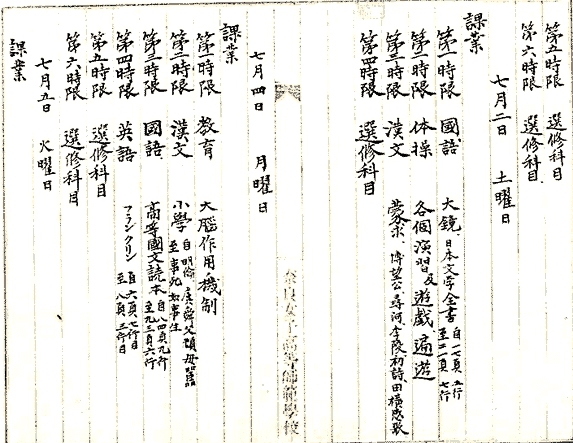 第五時限 選修科目
第六時限 選修科目
七月二日 土曜日
課業
第一時限 國語 大鏡 日本文学全書 自一七頁五行 至二一頁七行
第二時限 体操 各個演習及遊戯遍遊
第三時限 漢文 蒙求、博望公尋河李陵初詩、田横感歌
第四時限 選修科目
奈良女子高等師範學校
七月四日 月曜日
課業
第一時限 教育 大腦作用ノ機制
第二時限 漢文 小學 自明倫虞舜父頑母嚚 至事死如事生
第三時限 國語 高等國文読本 自八四頁九行 至九三頁六行
第四時限 英語 フランクリン 自六頁七行目 至八頁三行目
第五時限 選修科目
第六時限 選修科目
七月五日 火曜日
課業